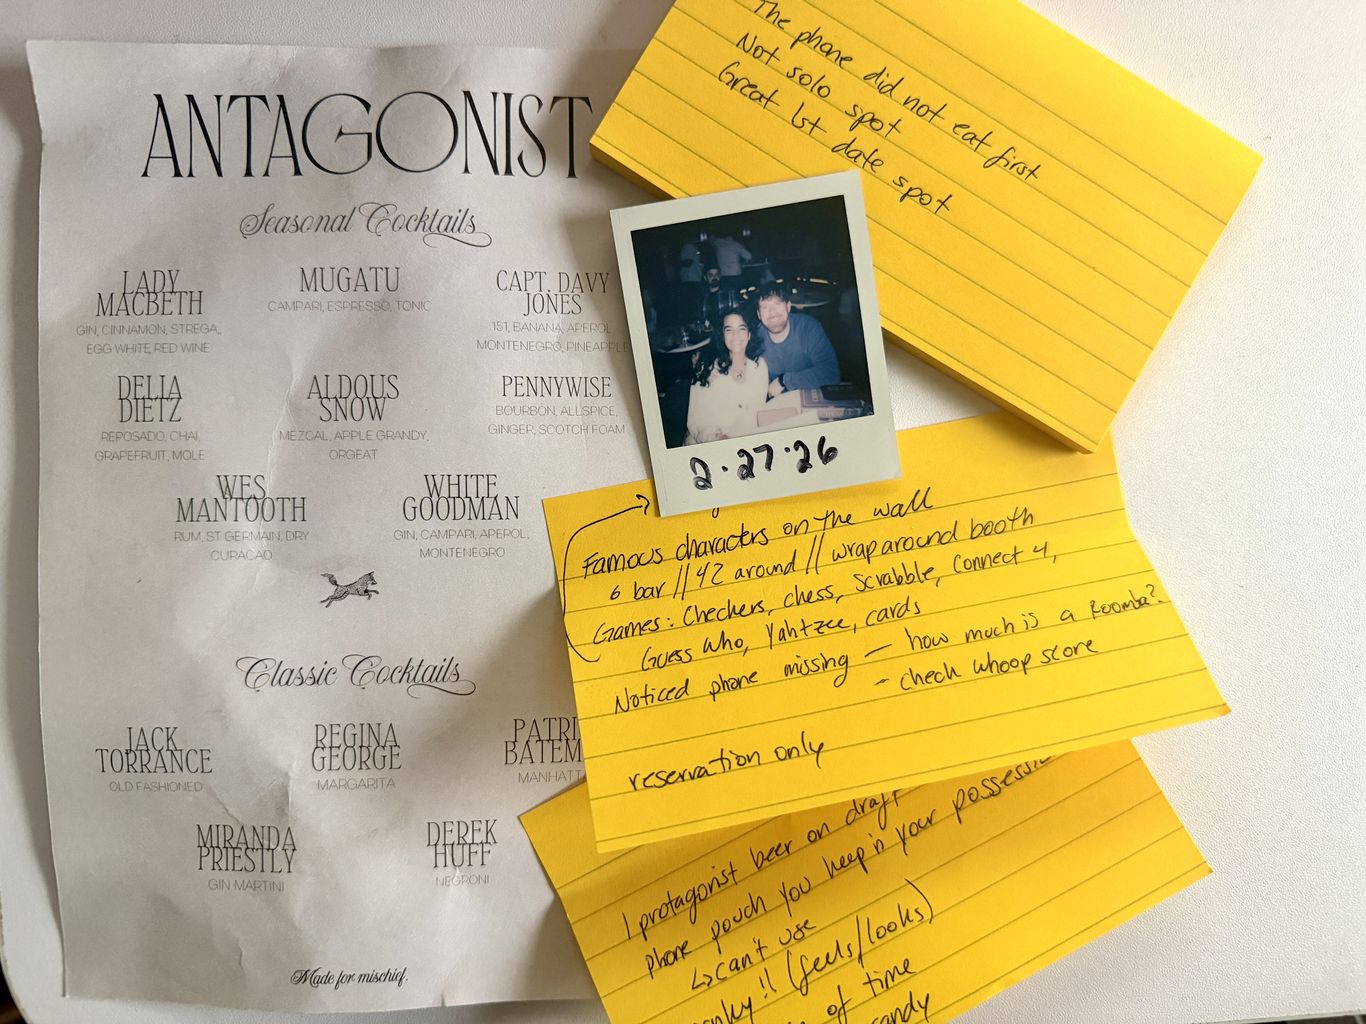 ANTAGONIST
Seasonal Cocktails
LADY
MACBETH
GIN, CINNAMON, STREGA,
EGG WHITE, RED WINE
MUGATU
CAMPARI, ESPRESSO, TONIC
CAPT. DAVY
JONES
151, BANANA, APEROL
MONTENEGRO, PINEAPPLE
DELIA
DIETZ
REPOSADO, CHAI,
GRAPEFRUIT, MOLE
ALDOUS
SNOW
MEZCAL, APPLE GRANDY,
ORGEAT
PENNYWISE
BOURBON, ALLSPICE,
GINGER, SCOTCH FOAM
WES
MANTOOTH
RUM, ST GERMAIN, DRY
CURACAO
WHITE
GOODMAN
GIN, CAMPARI, APEROL,
MONTENEGRO
Classic Cocktails
JACK
TORRANCE
OLD FASHIONED
REGINA
GEORGE
MARGARITA
PATRI
BATEM
MANHATT
MIRANDA
PRIESTLY
GIN MARTINI
DEREK
HUFF
NEGRONI
Made for mischief.
The phone did not eat first
Not solo spot
Great 1st date spot
2.27.26
Famous characters on the wall
6 bar // 42 around // wrap around booth
Games: Checkers, chess, Scrabble, Connect 4,
Guess Who, Yahtzee, cards
Noticed phone missing — how much is a Roomba?
- check whoop score
reservation only
1 protagonist beer on draft
phone pouch you keep in your possessi
↳ can't use
!! (feels/looks)
of time
candy